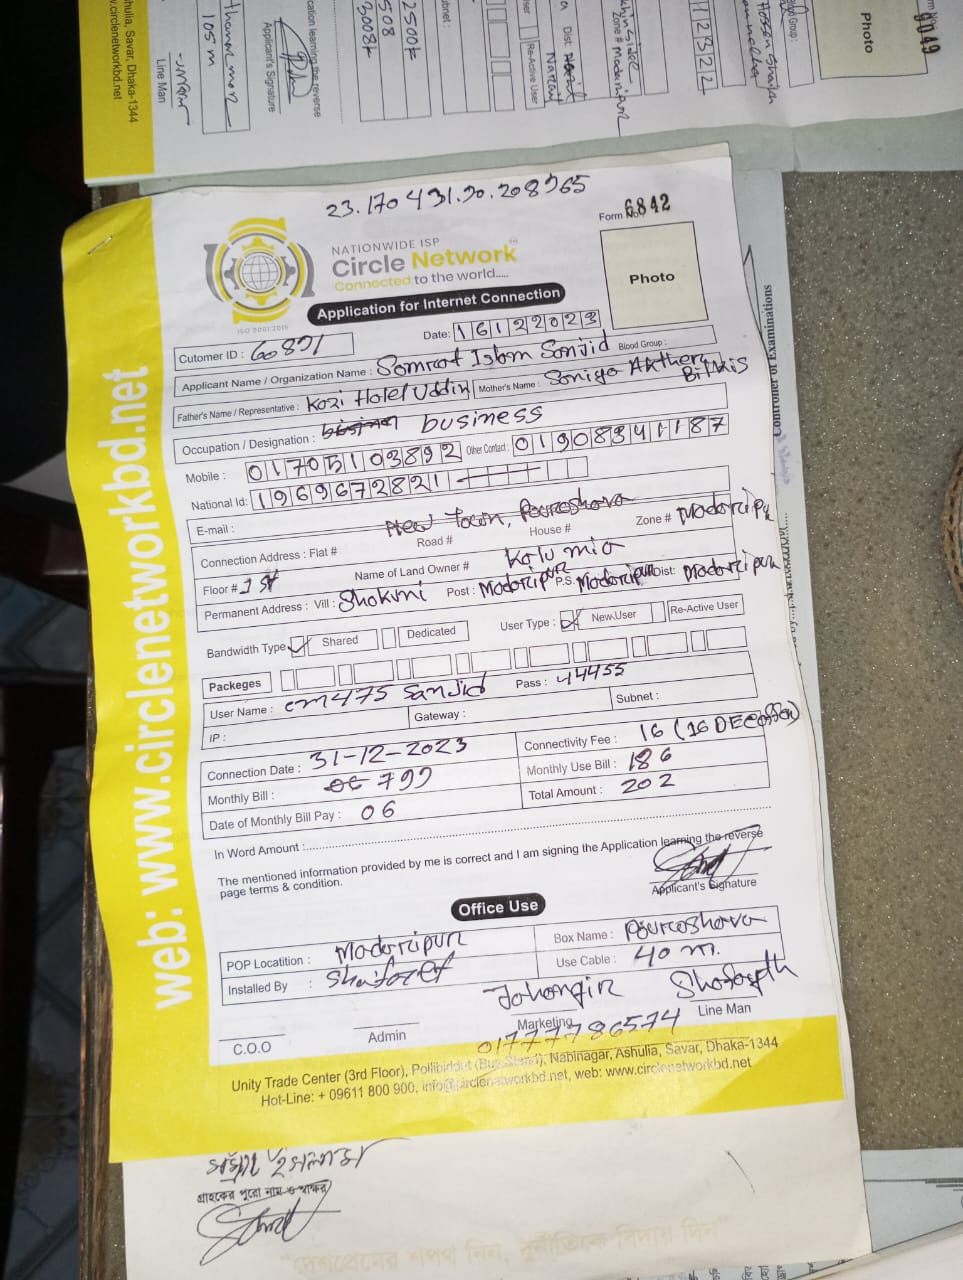 23.170431.90.208965
Form No. 6842
NATIONWIDE ISP
Circle Network
Connected to the world.....
ISO 9001:2015
Photo
Application for Internet Connection
Cutomer ID : 60891
Date: 16122023
Applicant Name / Organization Name : Somrat Islam Sanjid Blood Group :
Father's Name / Representative : Kazi Holel Uddin Mother's Name : Soniya Akthery Bilkis
Occupation / Designation : business
Mobile : 01705103892 Other Contact : 01908341187
National Id: 1969672821
E-mail :
New Town, Pouroshova
Connection Address : Flat # Road # House # Zone # Madaripur
Floor # 1st Name of Land Owner # Kalu mia
Permanent Address : Vill : Shokuni Post : Madaripur P.S. Madaripur Dist: Madaripur
Bandwidth Type Shared Dedicated User Type : New User Re-Active User
Packeges
User Name : cm475 Sanjid Pass : 44455
IP : Gateway : Subnet :
Connection Date : 31-12-2023 Connectivity Fee : 16 (16 DECember)
Monthly Bill : 799 Monthly Use Bill : 186
Date of Monthly Bill Pay : 06 Total Amount : 202
In Word Amount :
The mentioned information provided by me is correct and I am signing the Application learning the reverse
page terms & condition.
Applicant's Signature
Office Use
POP Locatition : Madaripur Box Name : Pouroshova
Installed By : Use Cable : 40 m.
Jahangir
C.O.O Admin Marketing Line Man
01777786574
Unity Trade Center (3rd Floor), Pollibiddut (Bus Stand), Nabinagar, Ashulia, Savar, Dhaka-1344
Hot-Line: + 09611 800 900, info@circlenetworkbd.net, web: www.circlenetworkbd.net
web: www.circlenetworkbd.net
গ্রাহকের পুরো নাম ও স্বাক্ষর
"দেশপ্রেমের শপথ নিন, দুর্নীতিকে বিদায় দিন"
Controller of Examinations
Photo
9049
Blood Group :
Zone # Madaripur
Re-Active User
2500k
508
3008k
Applicant's Signature
105m
Line Man
Ashulia, Savar, Dhaka-1344
www.circlenetworkbd.net